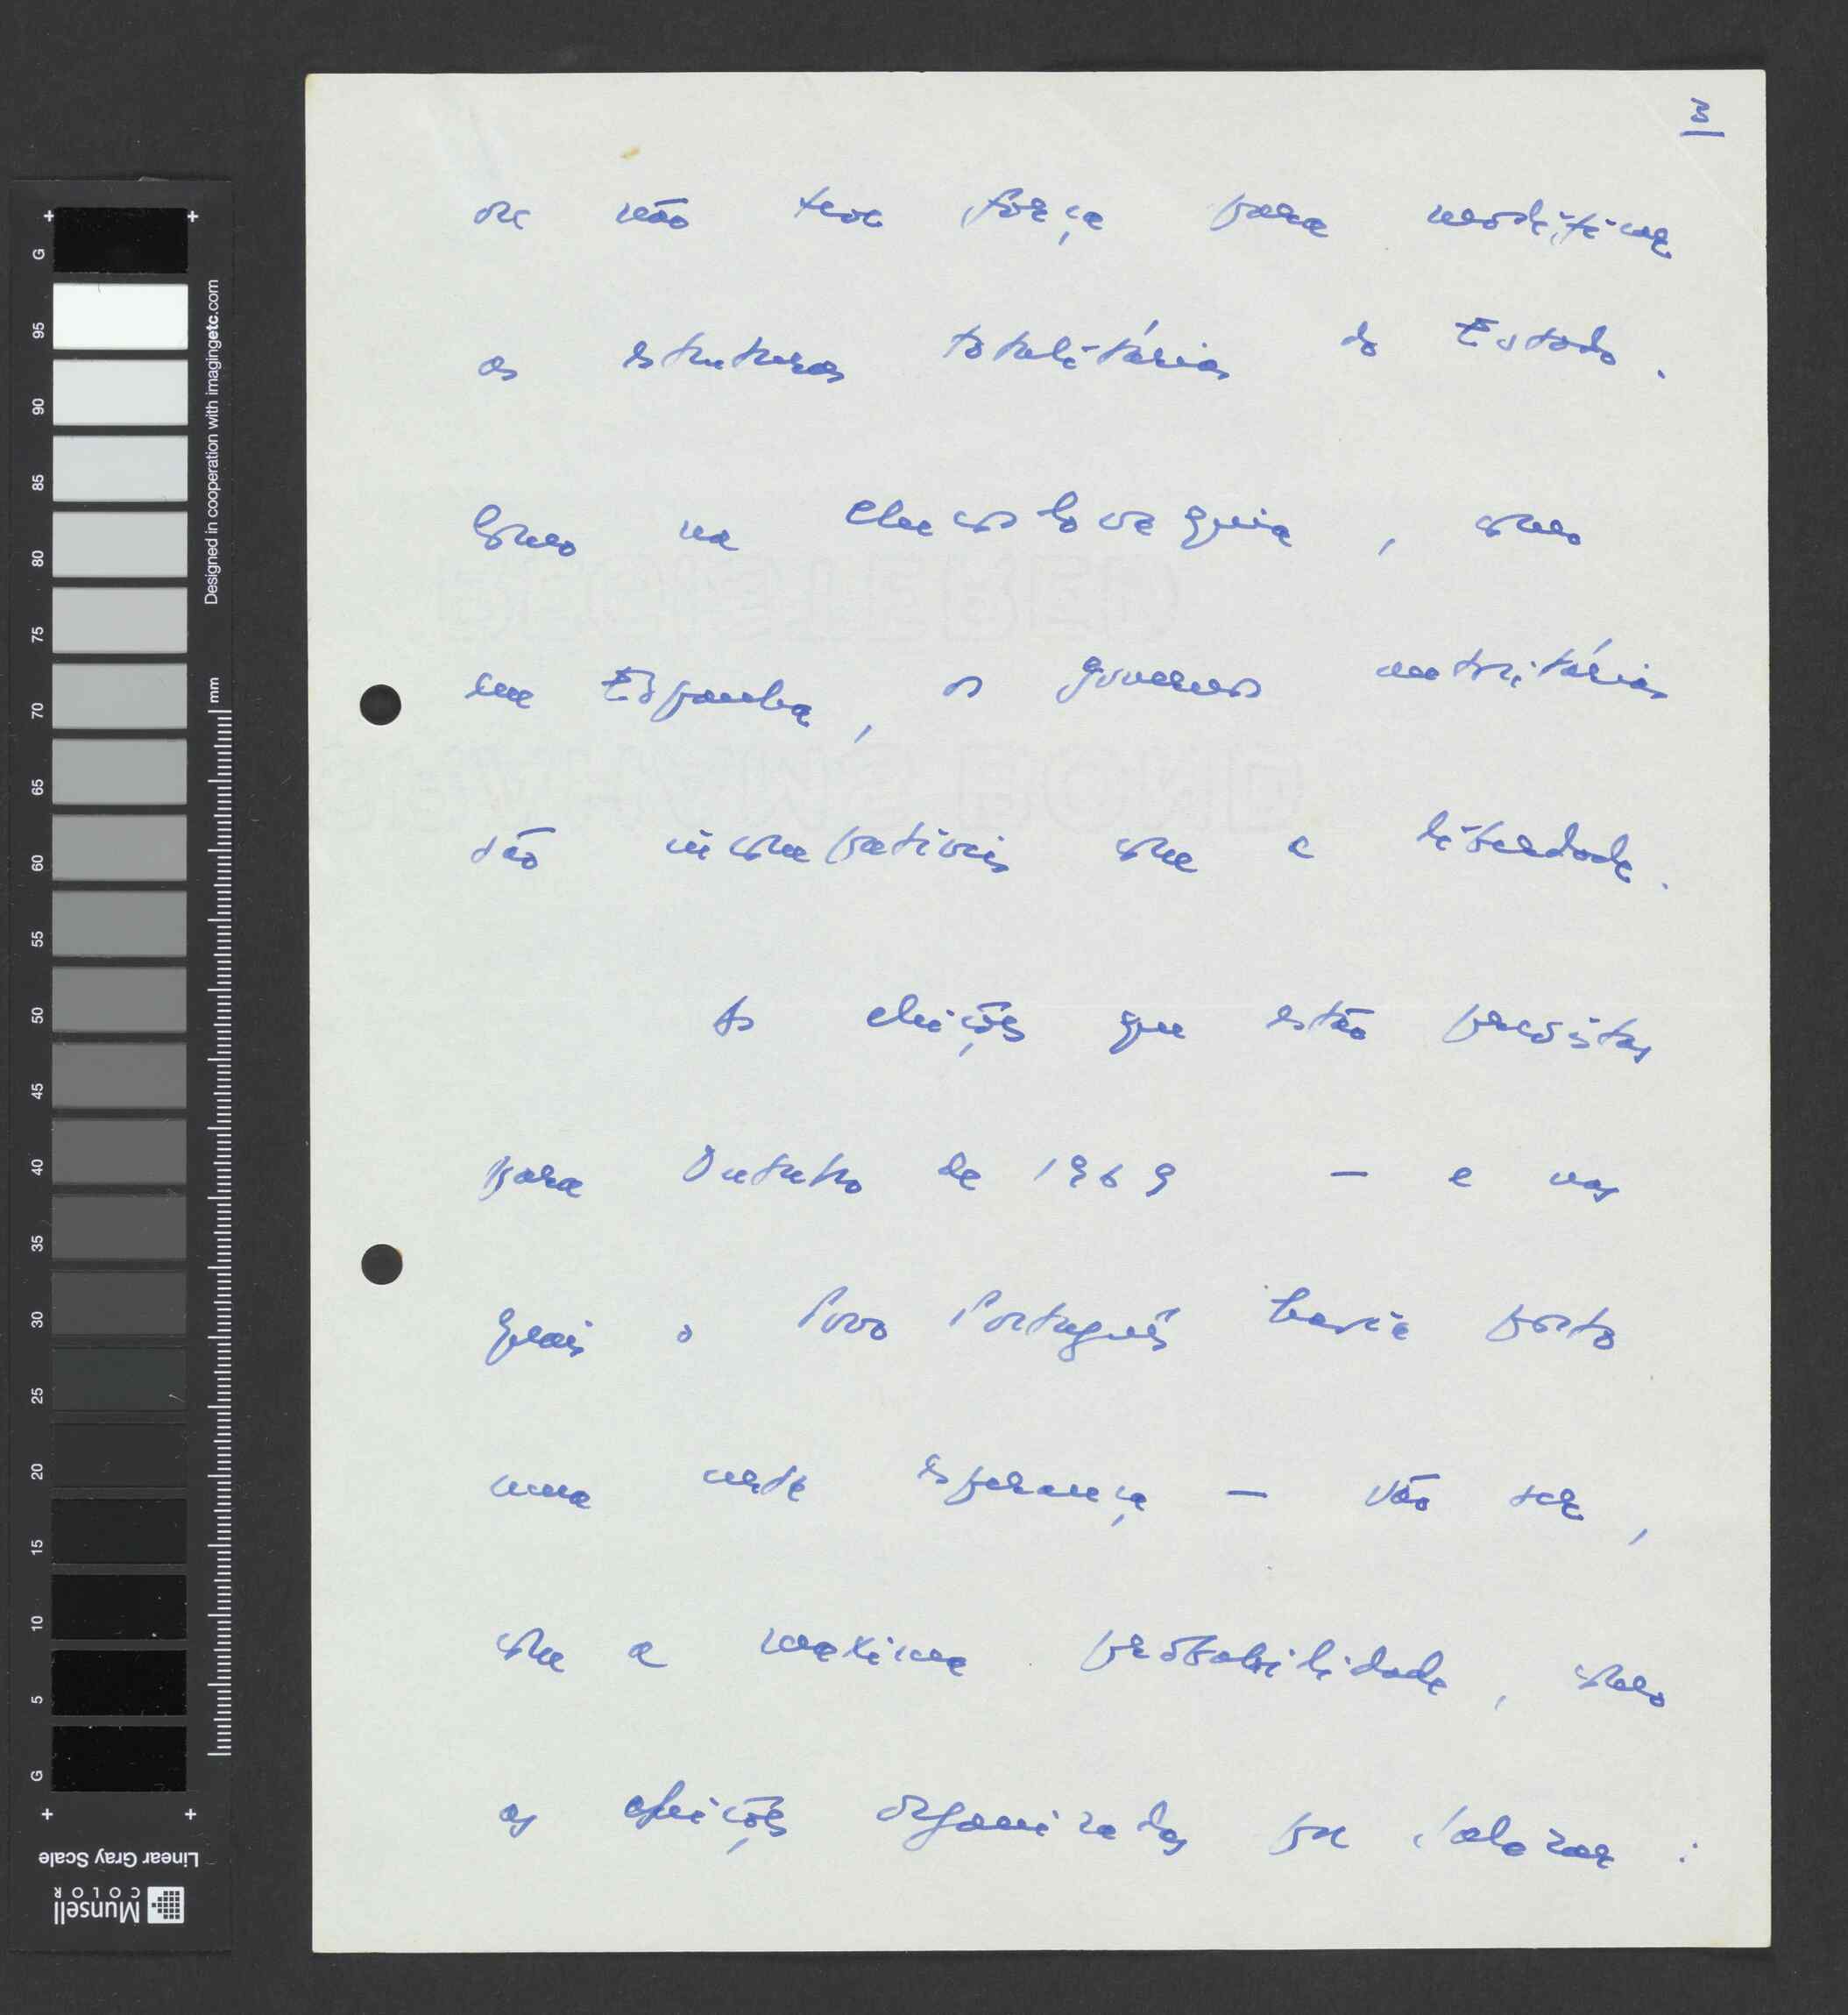 3
ou não teve força para modificar
as estruturas totalitárias do Estado.
Como na Checoslovaquia, como
em Espanha, os governos autoritários
são incompativeis com a liberdade.
As eleições que estão previstas
para Outubro de 1969 — e nas
quais o Povo Português havia posto
uma certa esperança — vão ser,
com a maxima probabilidade, como
as eleições organizadas por Salazar:
G
95
90
85
80
75
70
65
60
55
50
45
40
35
30
25
20
15
10
5
G
Designed in cooperation with imagingetc.com
mm
Linear Gray Scale
Munsell
COLOR